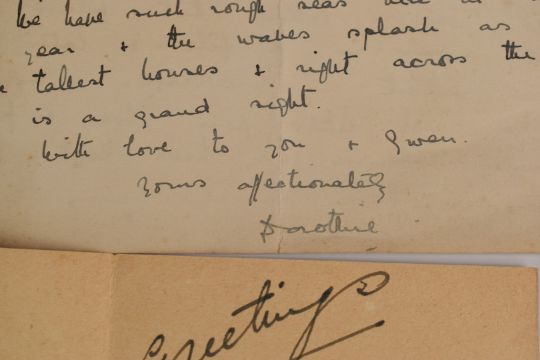 We have such rough seas here
year + the waves splash as
tallest houses + right across the
is a grand sight.
With love to you + Gwen.
Yours affectionately
Dorothie
Greetings